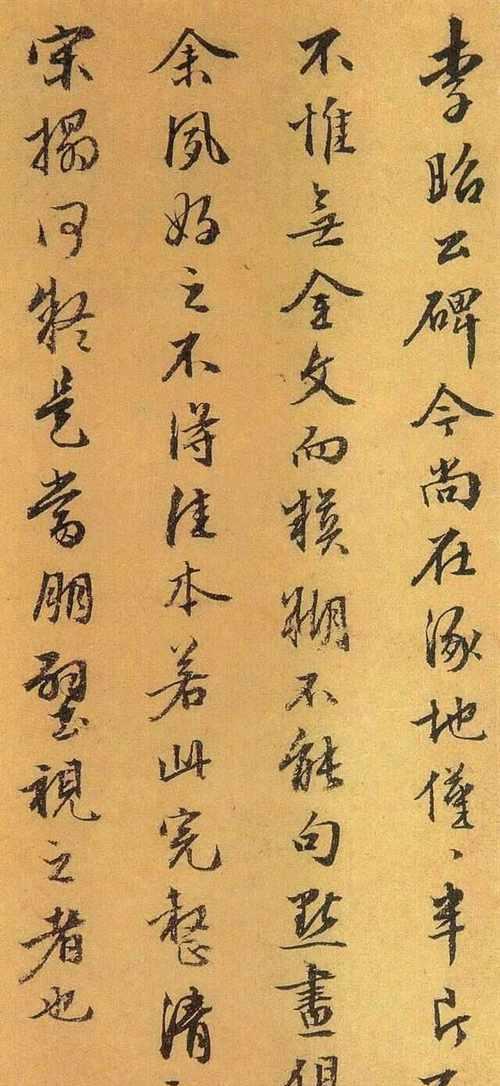 李昭公碑今尚在涿地僅〻半片
不惟無全文而糢糊不能句點畫
余夙好之不得佳本若此完整清
宋搨何疑是當朋璧視之者也